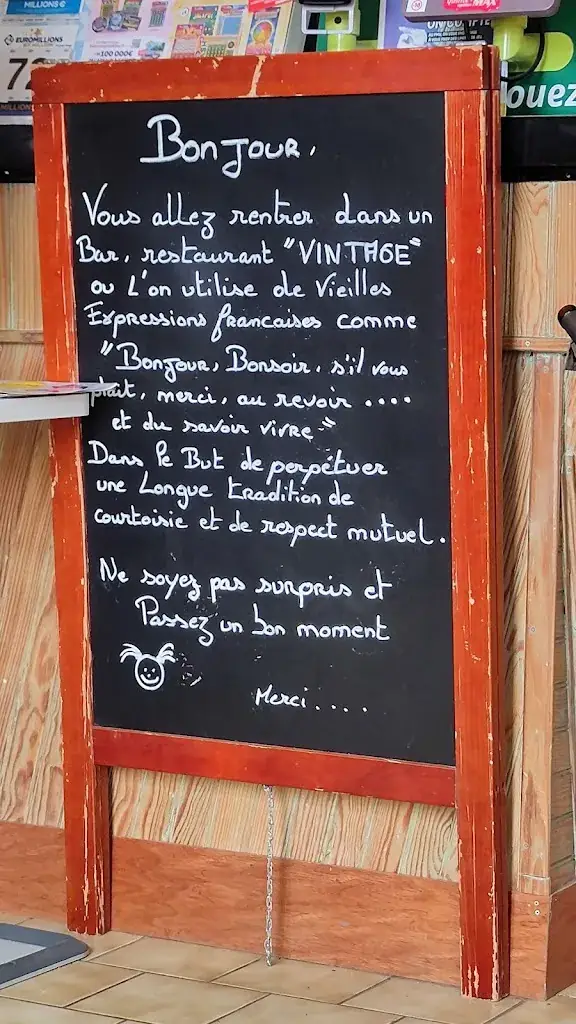 MILLIONS €
EUROMILLIONS
100 000€
MILLIONS
Jouez
Bonjour,
Vous allez rentrer dans un
Bar, restaurant "VINTAGE"
ou L'on utilise de Vieilles
Expressions francaises comme
"Bonjour, Bonsoir, s'il vous
plait, merci, au revoir ....
et du savoir vivre"
Dans le But de perpétuer
une Longue tradition de
courtoisie et de respect mutuel.
Ne soyez pas surpris et
Passez un bon moment
Merci....